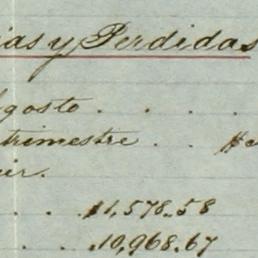 ias y Perdidas
Agosto . . . .
trimestre . . $
ier.
. . $1,578.58
. . 10,968.67